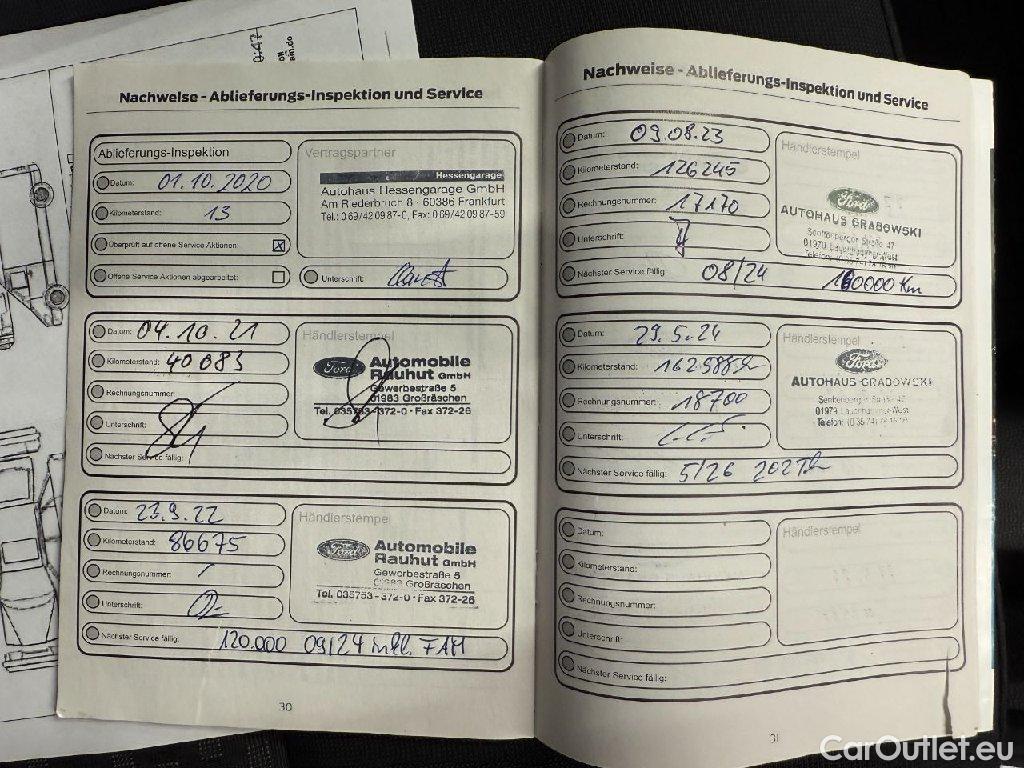 Nachweise - Ablieferungs-Inspektion und Service
Ablieferungs-Inspektion
Datum: 01.10.2020
Kilometerstand: 13
Überprüft auf offene Service Aktionen:
Offene Service Aktionen abgearbeitet:
Vertragspartner
Hessengarage
Autohaus Hessengarage GmbH
Am Riederbruch 8 - 60386 Frankfurt
Tel.: 069/420987-0, Fax: 069/420987-59
Unterschrift:
Datum: 04.10.21
Kilometerstand: 40083
Rechnungsnummer:
Unterschrift:
Nächster Service fällig:
Händlerstempel
Ford
Automobile
Rauhut GmbH
Gewerbestraße 5
01983 Großräschen
Tel. 035753-372-0 · Fax 372-26
Datum: 23.9.22
Kilometerstand: 86675
Rechnungsnummer:
Unterschrift:
Nächster Service fällig: 120.000 09/24
Händlerstempel
Ford
Automobile
Rauhut GmbH
Gewerbestraße 5
01983 Großräschen
Tel. 035753-372-0 · Fax 372-26
30
Nachweise - Ablieferungs-Inspektion und Service
Datum: 09.08.23
Kilometerstand: 126245
Rechnungsnummer: 17170
Unterschrift:
Nächster Service fällig: 08/24 160000 Km
Händlerstempel
Ford
AUTOHAUS GRABOWSKI
Senftenberger Straße 47
01979 Lauchhammer-West
Datum: 29.5.24
Kilometerstand:
Rechnungsnummer: 18700
Unterschrift:
Nächster Service fällig: 5/26
Händlerstempel
Ford
AUTOHAUS GRABOWSKI
01979 Lauchhammer-West
Datum:
Kilometerstand:
Rechnungsnummer:
Unterschrift:
Nächster Service fällig:
Händlerstempel
31
CarOutlet.eu